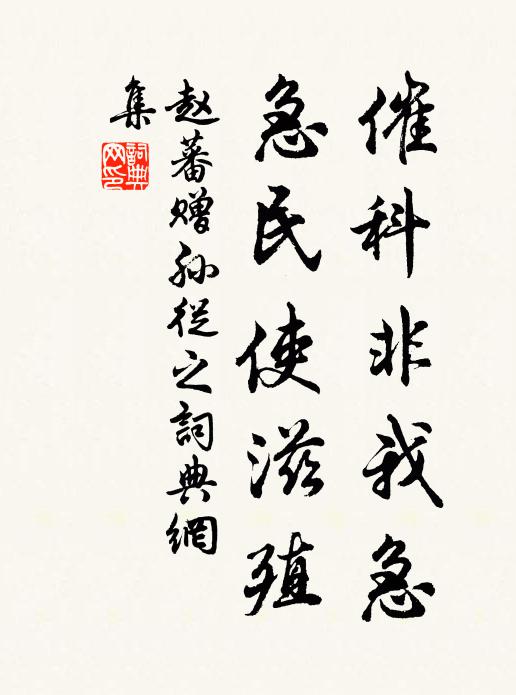 催科非我急
急民使滋殖
赵蕃贈孙從之詞典網
集
詞典
网印